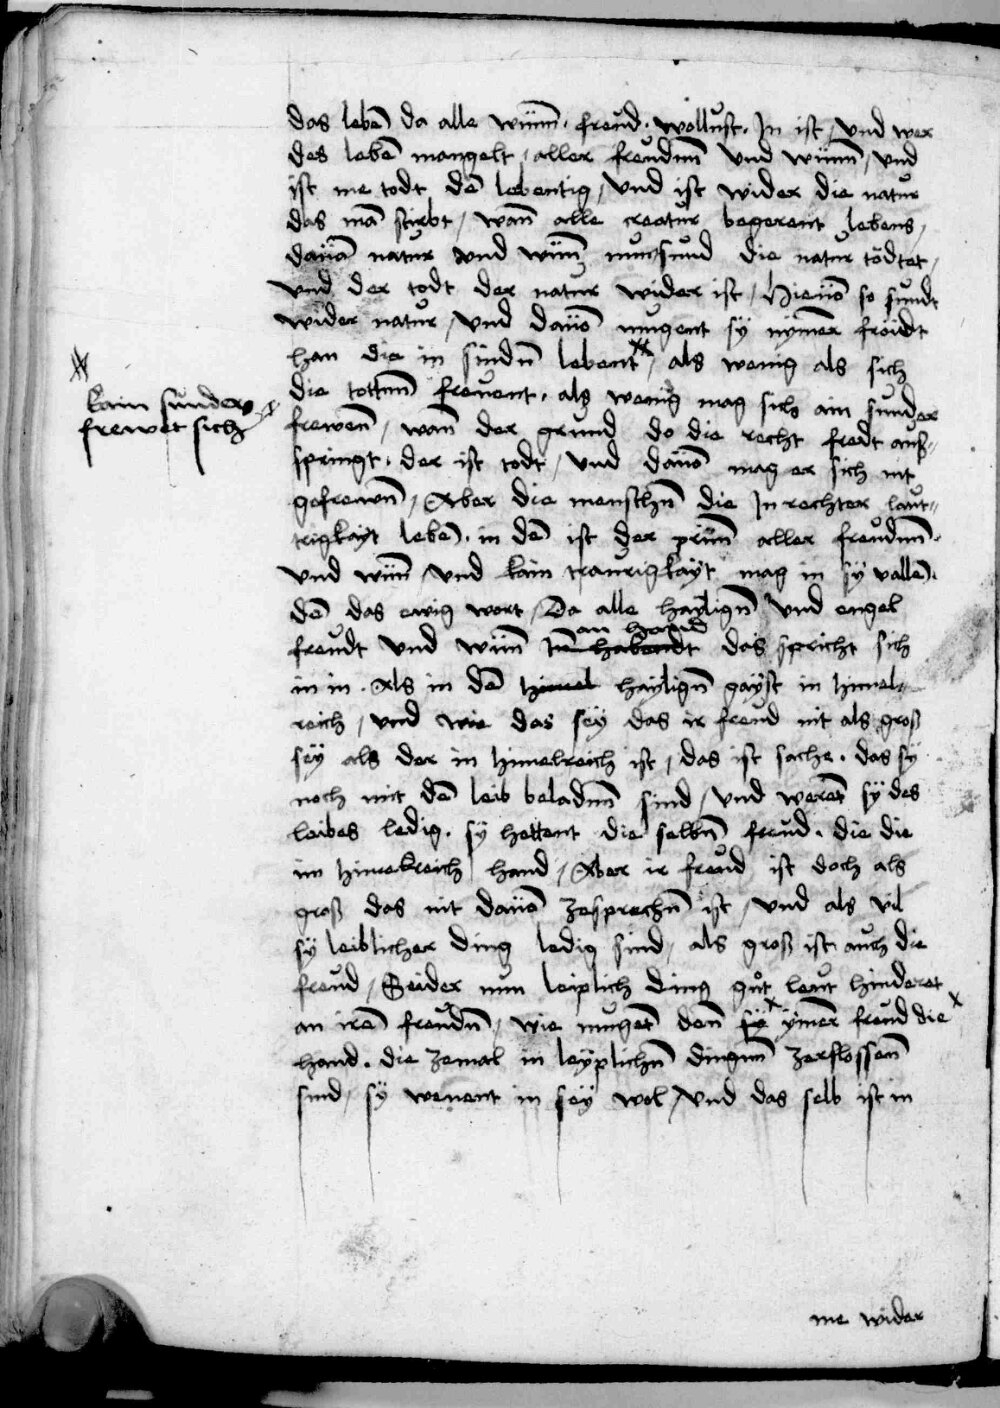 das lebē da alle wūnn · freud · wollust · Jn ist / vnd wer
des lebē mangelt / aller freudnn vnd wūnn / vnd
ist me todt dē lebentig / vnd ist wider die natur
das mā stirbt / wan̄ alle creatur begerent lebens /
dauō natur vnd wūnn nun sund die natur tödtet /
vnd der todt der natur wider ist / Hieuō so sundt
wider natur / vnd dauō mugent sÿ nÿmer fröudt
han die in sindn̄ lebent / als wenig als sich
die tottnn freuent · als wenig mag sich ain sunder
frewen̄ / wan̄ der grund do die recht fredt auß-
springt · der ist todt / vnd dauō mag er sich nit
gefrewn̄ / Aber die menschn̄ die Jn rechter laut-
trigkayt lebē · in dē ist der prūnn aller freudnn ·
vnd wūnn / vnd kain traurigkaÿt mag in sÿ vallē ·
dē das ewig wort / Da alle haÿlign̄ vnd engel
an hand
freudt vnd wūnn Jn habendt das spricht sich
in in · Als in dē himel haÿlign̄ gaÿst in himel-
reich / vnd wie das seÿ das ir freud nit als groß
seÿ als der in himelreich ist / das ist sache · das sÿ
noch mit dē leib beladnn sind / vnd werēt sÿ des
leibes ledig · sÿ hettent die selbn̄ freud · die die
im himelreich hand / Aber ir freud ist doch als
groß das nit dauō zesprechn̄ ist / vnd als vil
sÿ leiblicher ding ledig sind / als groß ist auch die
freud / Seider nun leiplich ding gůt leut hinderet
an irē freudn̄ / wie mugēt den̄ sÿ ÿmer freud die
hand · die zemal in leÿplichn̄ dingnn zerflossen̄
sind / sÿ wenent in seÿ wol / vnd das selb ist in
kain sunder
frewet sich
me wider